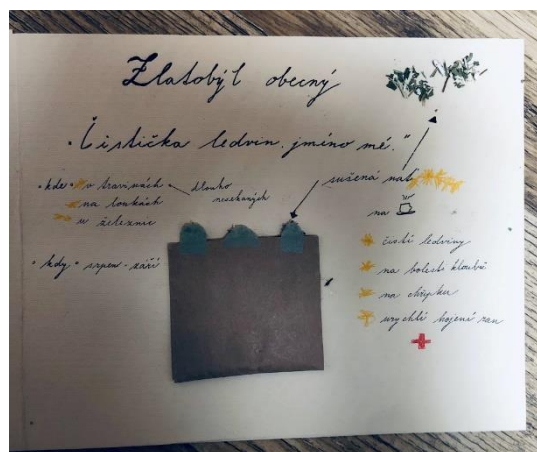 Zlatobýl obecný
"Čistička ledvin, jméno mé."
• kde • v travinách
dlouho
nesekaných
na loukách
u železnic
• kdy • srpen - září
sušená nať
na
čistí ledviny
na bolest kloubů
na chřipku
urychlí hojení ran